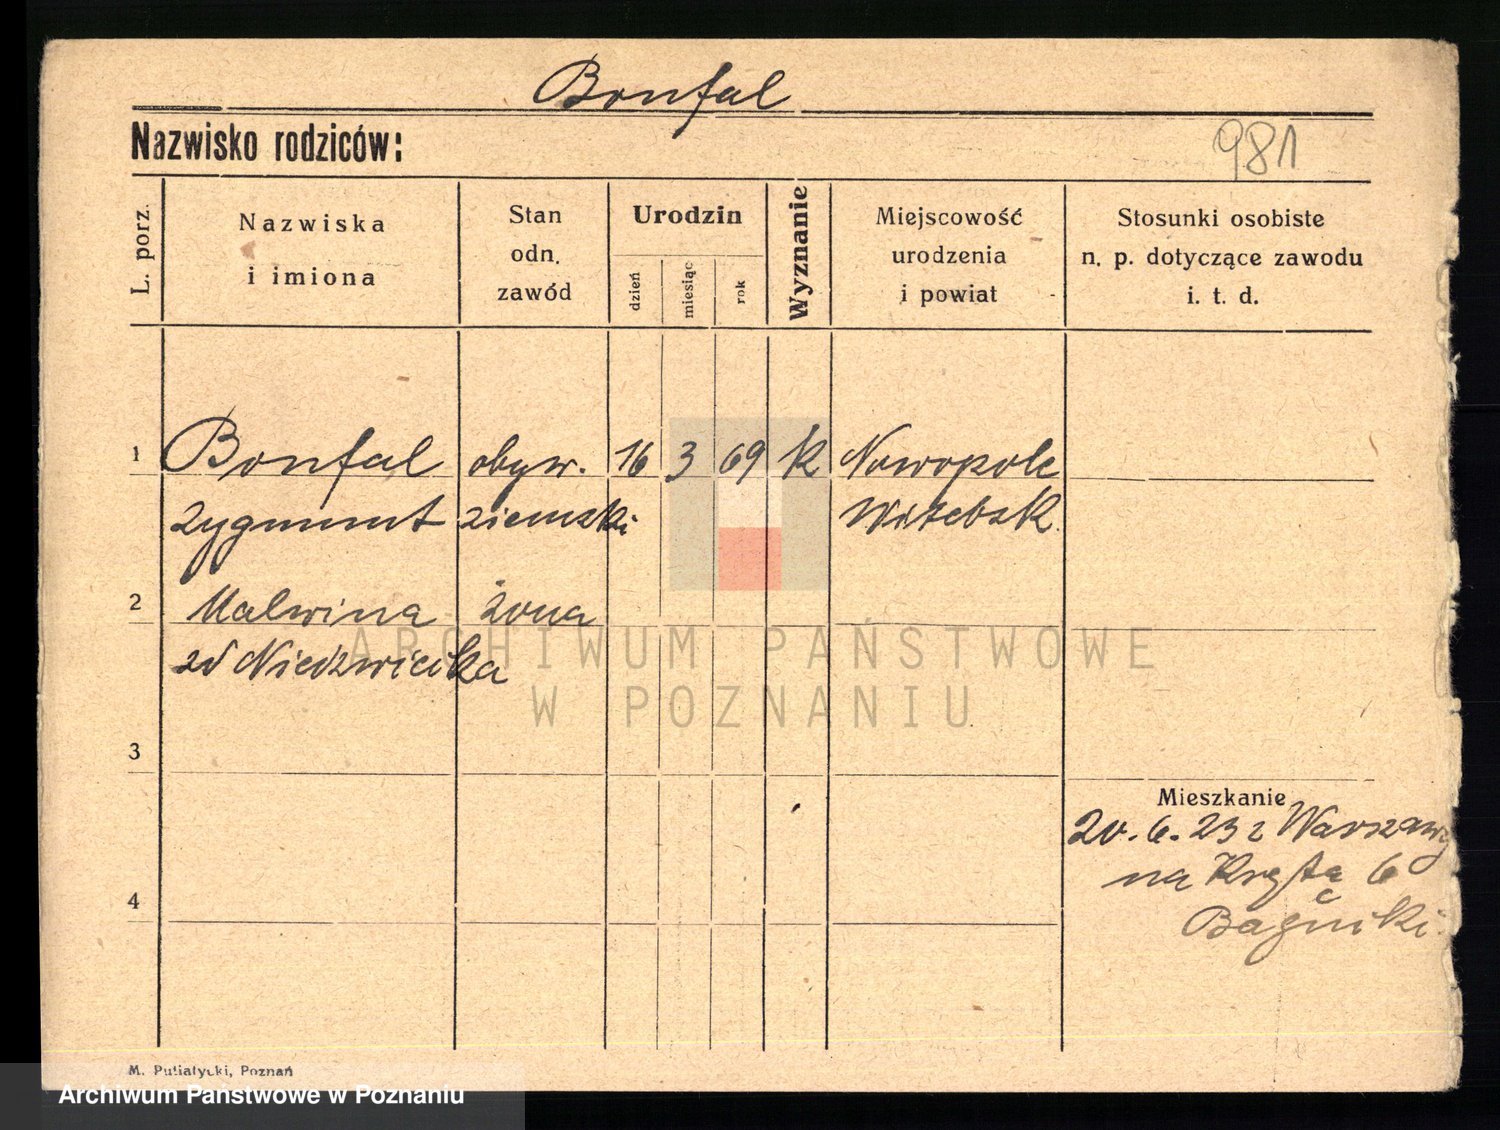 Bonfal
Nazwisko rodziców:
981
L. porz.
Nazwiska
i imiona
Stan
odn.
zawód
Urodzin
dzień
miesiąc
rok
Wyznanie
Miejscowość
urodzenia
i powiat
Stosunki osobiste
n. p. dotyczące zawodu
i. t. d.
1 Bonfal obyw. 16 3 69 k Nowopole
Zygmunt ziemski Witebsk.
2 Malwina żona
zd Niedzwiecka
3
4
Mieszkanie
20. 6. 23 z Warszawy
na Krętą 6
ARCHIWUM PAŃSTWOWE
W POZNANIU
M. Putiatycki, Poznań
Archiwum Państwowe w Poznaniu